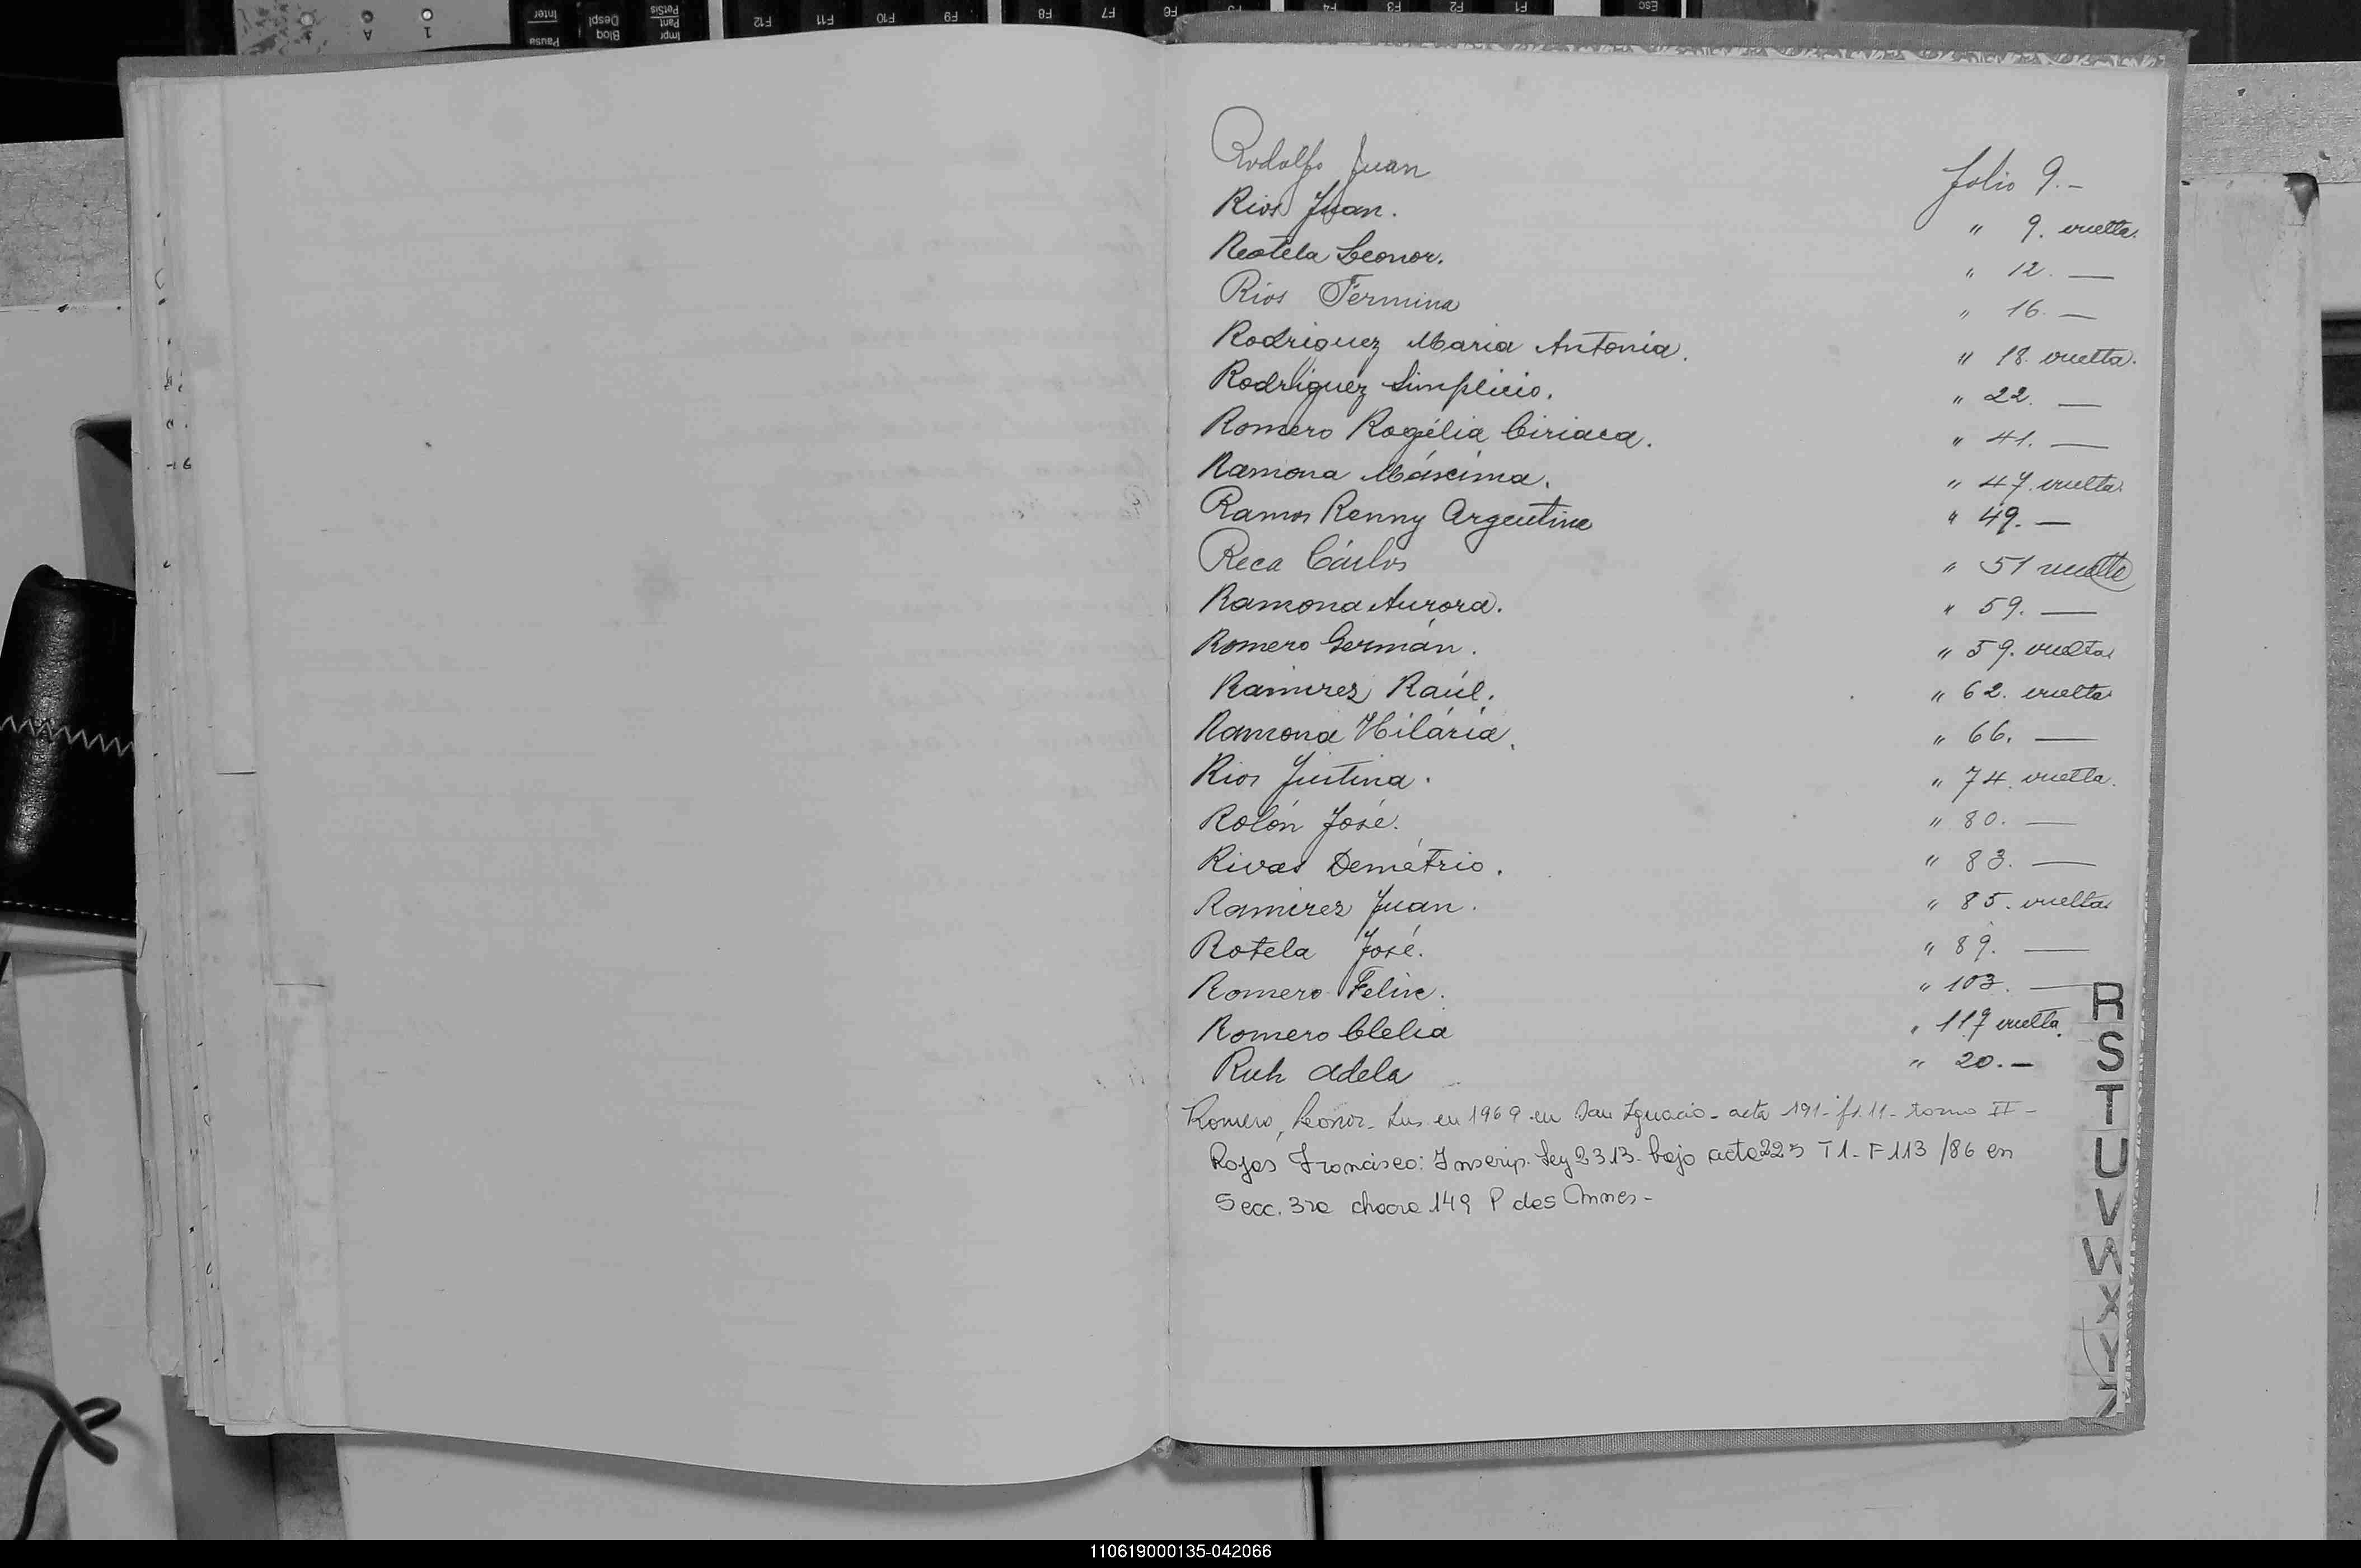 Rodolfo Juan folio 9.-
Rios Juan. " 9. vuelta.
Reotela Leonor. " 12. —
Rios Fermina " 16. —
Rodriguez Maria Antonia. " 18. vuelta.
Rodriguez Simplicio. " 22. —
Romero Rogélia Ciriaca. " 41. —
Ramona Máxima. " 47. vuelta.
Ramos Renny Argentina " 49. —
Reca Cárlos " 51 vuelta
Ramona Aurora. " 59. —
Romero Germán. " 59. vuelta
Ramirez Raúl. " 62. vuelta
Ramona Hilária. " 66. —
Rios Justina. " 74. vuelta.
Rolón José. " 80. —
Rivas Demétrio. " 83. —
Ramirez Juan. " 85. vuelta
Rotela José. " 89. —
Romero Felix. " 103. —
Romero Clelia " 117 vuelta.
Ruh Adela " 20.—
Romero, Leonor- Ins. en 1969 en San Ignacio- acta 191- fs. 11- tomo II-
Rojas Francisco: Inscrip. Ley 2313- bajo acta 225 T1- F 113 /86 en
Secc. 3ra chacra 149 P das Mnes-
R
S
T
U
V
W
X
Y
Z
Esc
F1
F2
F3
F4
F5
F6
F7
F8
F9
F10
F11
F12
Impr
Pant
PetSis
Bloq
Despl
Pausa
Inter
1
A
110619000135-042066